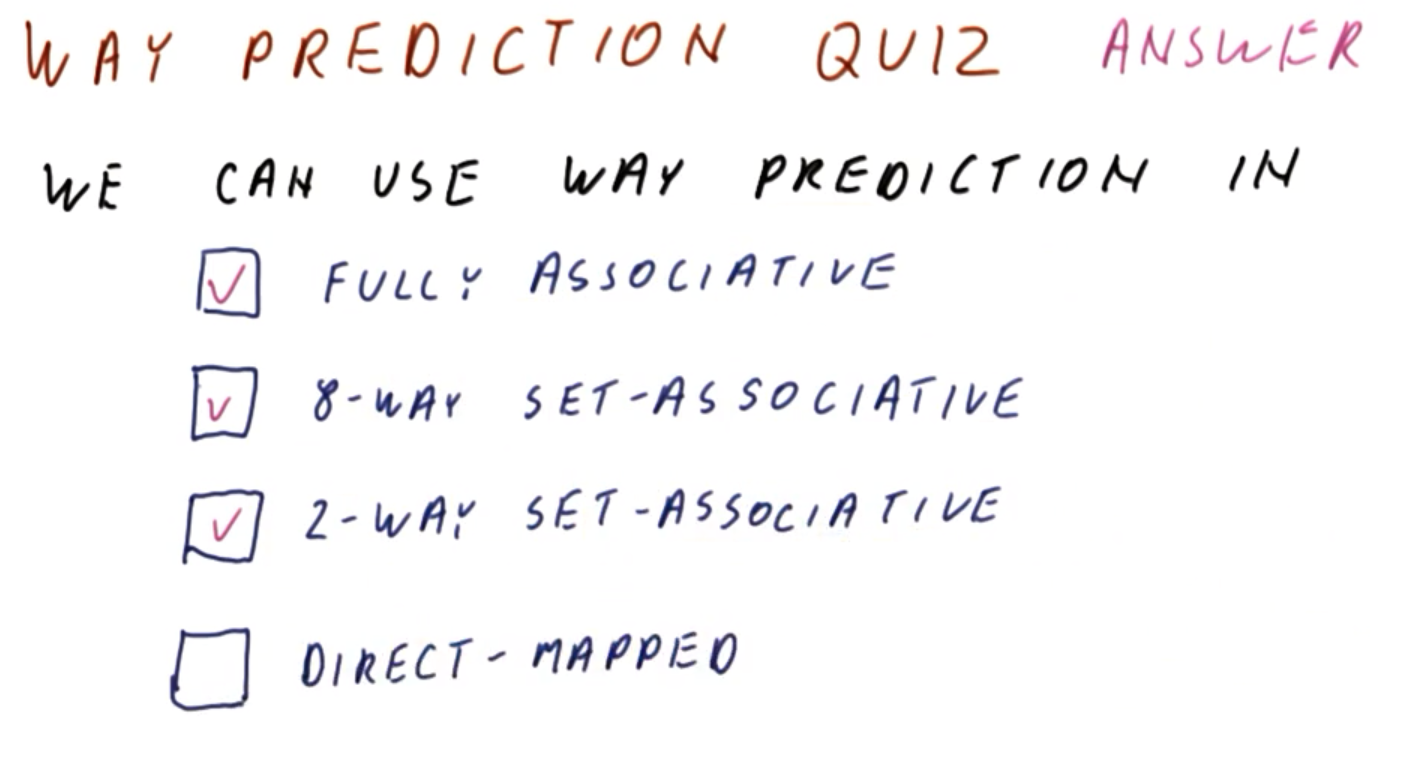 WAY PREDICTION QUIZ ANSWER
WE CAN USE WAY PREDICTION IN
FULLY ASSOCIATIVE
8-WAY SET-ASSOCIATIVE
2-WAY SET-ASSOCIATIVE
DIRECT-MAPPED